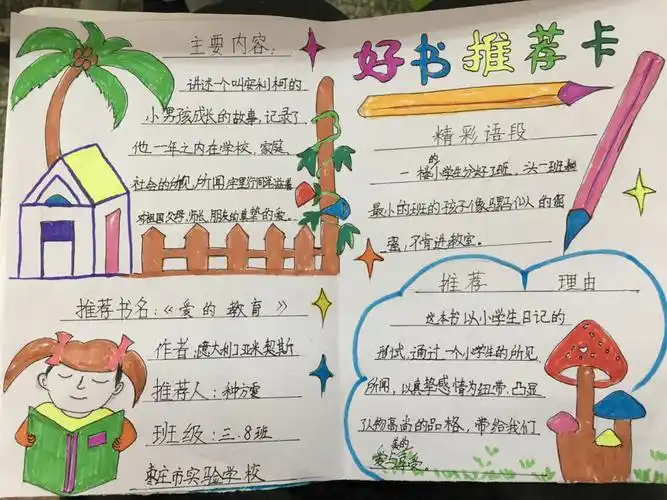 主要内容:
讲述一个叫安利柯的
小男孩成长的故事,记录了
他一年之内在学校、家庭
社会的所见所闻,字里行间洋溢着
对祖国、父母、师长、朋友的真挚的爱。
推荐书名:《爱的教育》
作者:意大利亚米契斯
推荐人:种方雯
班级:三.8班
枣庄市实验学校
好书推荐卡
精彩语段
一楼的小学生分好了班,头一班
最小的班的孩子像骡马似的
不肯进教室。
推荐理由
这本书以小学生日记的
形式,通过一个小学生的所见
所闻,以真挚感情为纽带,凸显
人物高尚的品格,带给我们
真的
爱与享受。